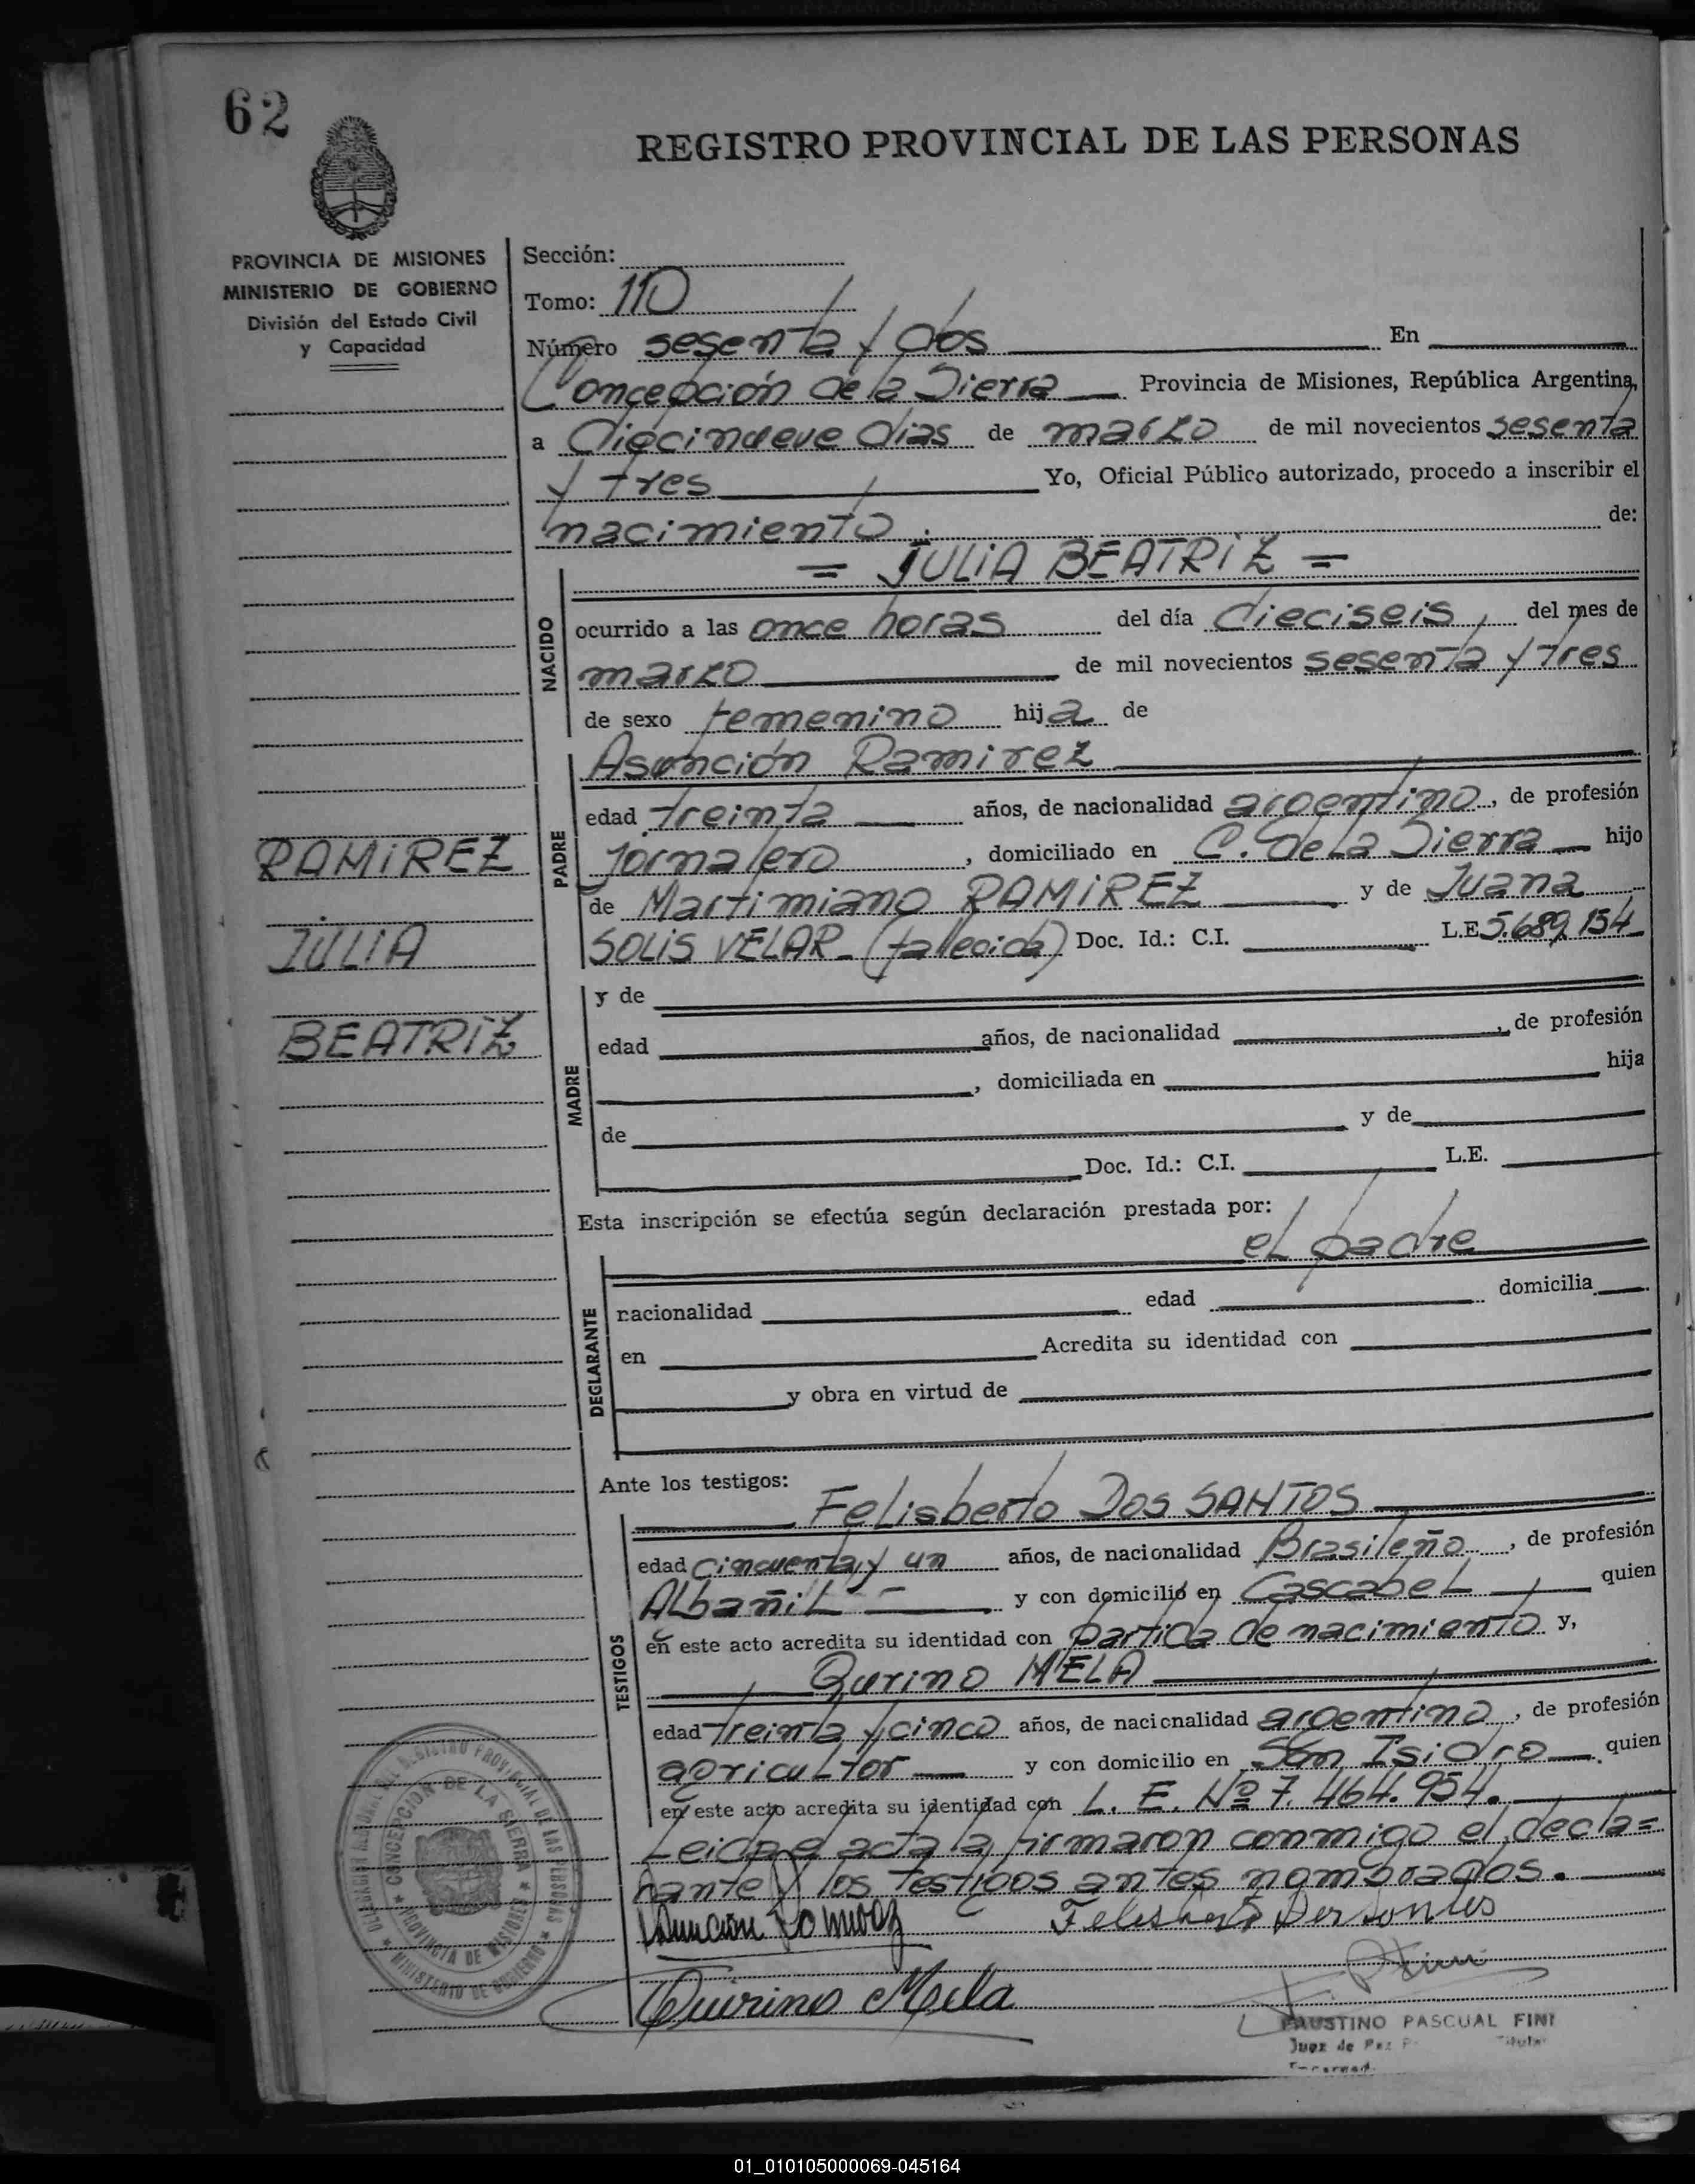 62
REGISTRO PROVINCIAL DE LAS PERSONAS
PROVINCIA DE MISIONES
MINISTERIO DE GOBIERNO
División del Estado Civil
y Capacidad
Sección:
Tomo: 110
Número sesenta y dos En
Concepción de la Sierra Provincia de Misiones, República Argentina,
a diecinueve dias de marzo de mil novecientos sesenta
y tres Yo, Oficial Público autorizado, procedo a inscribir el
nacimiento de:
= JULIA BEATRIZ =
NACIDO
ocurrido a las once horas del día dieciseis, del mes de
marzo de mil novecientos sesenta y tres
de sexo femenino hija de
PADRE
Asunción Ramirez
edad treinta años, de nacionalidad argentino, de profesión
Jornalero, domiciliado en C. de la Sierra hijo
de Martimiano RAMIREZ y de Juana
SOLIS VELAR - (fallecida) Doc. Id.: C.I. L.E. 5.689.154
RAMIREZ
JULIA
BEATRIZ
MADRE
y de
edad años, de nacionalidad , de profesión
, domiciliada en hija
de y de
Doc. Id.: C.I. L.E.
Esta inscripción se efectúa según declaración prestada por:
el padre
DECLARANTE
nacionalidad edad domicilia
en Acredita su identidad con
y obra en virtud de
Ante los testigos:
TESTIGOS
Felisberto DOS SANTOS
edad cincuenta y un años, de nacionalidad Brasileño, de profesión
Albañil - y con domicilio en Cascabel quien
en este acto acredita su identidad con partida de nacimiento y,
Qurino MELA
edad treinta y cinco años, de nacionalidad argentino, de profesión
agricultor y con domicilio en San Isidro quien
en este acto acredita su identidad con L. E. Nº 7.464.954.
Leida el acta la firmaron conmigo el decla=
rante y los testigos antes nombrados.
Quirino Mela
FAUSTINO PASCUAL FINI
Juez de Paz Titular
DELEGACION REGISTRO PROVINCIAL DE LAS PERSONAS
CONCEPCION DE LA SIERRA
PROVINCIA DE MISIONES
MINISTERIO DE GOBIERNO
01_010105000069-045164